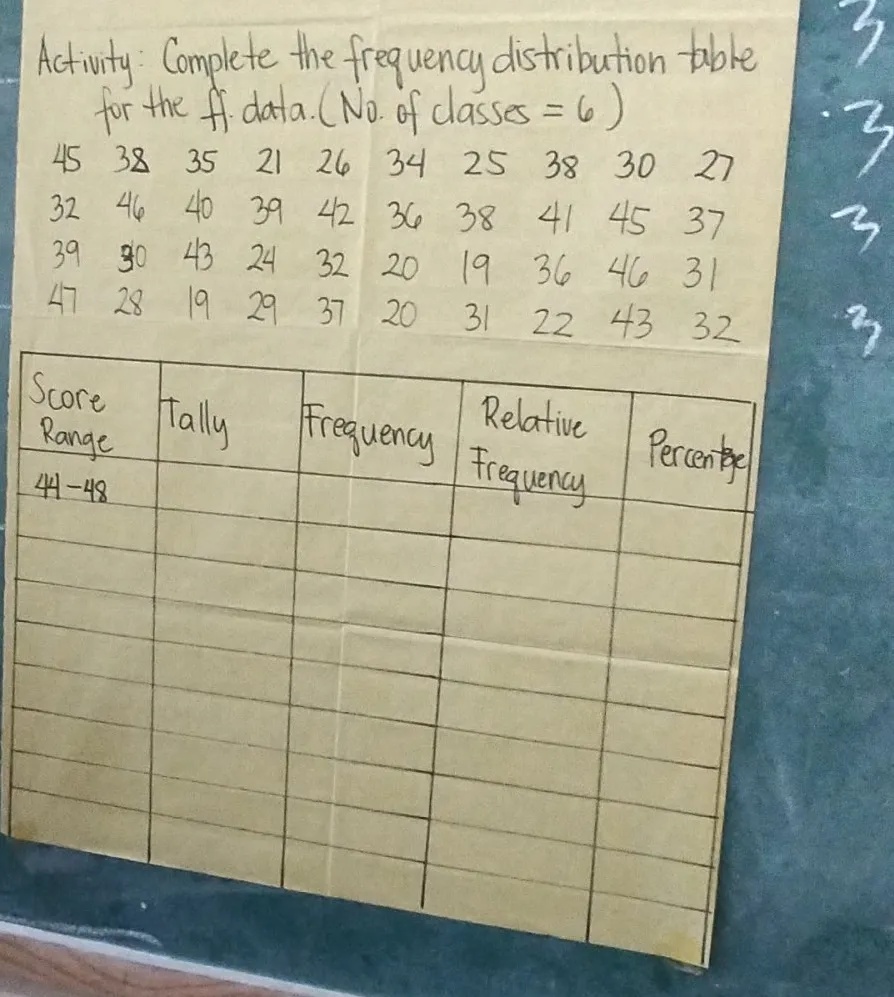 Activity: Complete the frequency distribution table
for the ff. data. (No. of classes = 6)
45 38 35 21 26 34 25 38 30 27
32 46 40 39 42 36 38 41 45 37
39 30 43 24 32 20 19 36 46 31
47 28 19 29 37 20 31 22 43 32
Score Range Tally Frequency Relative Frequency Percentage
44-48
3
3
3
3